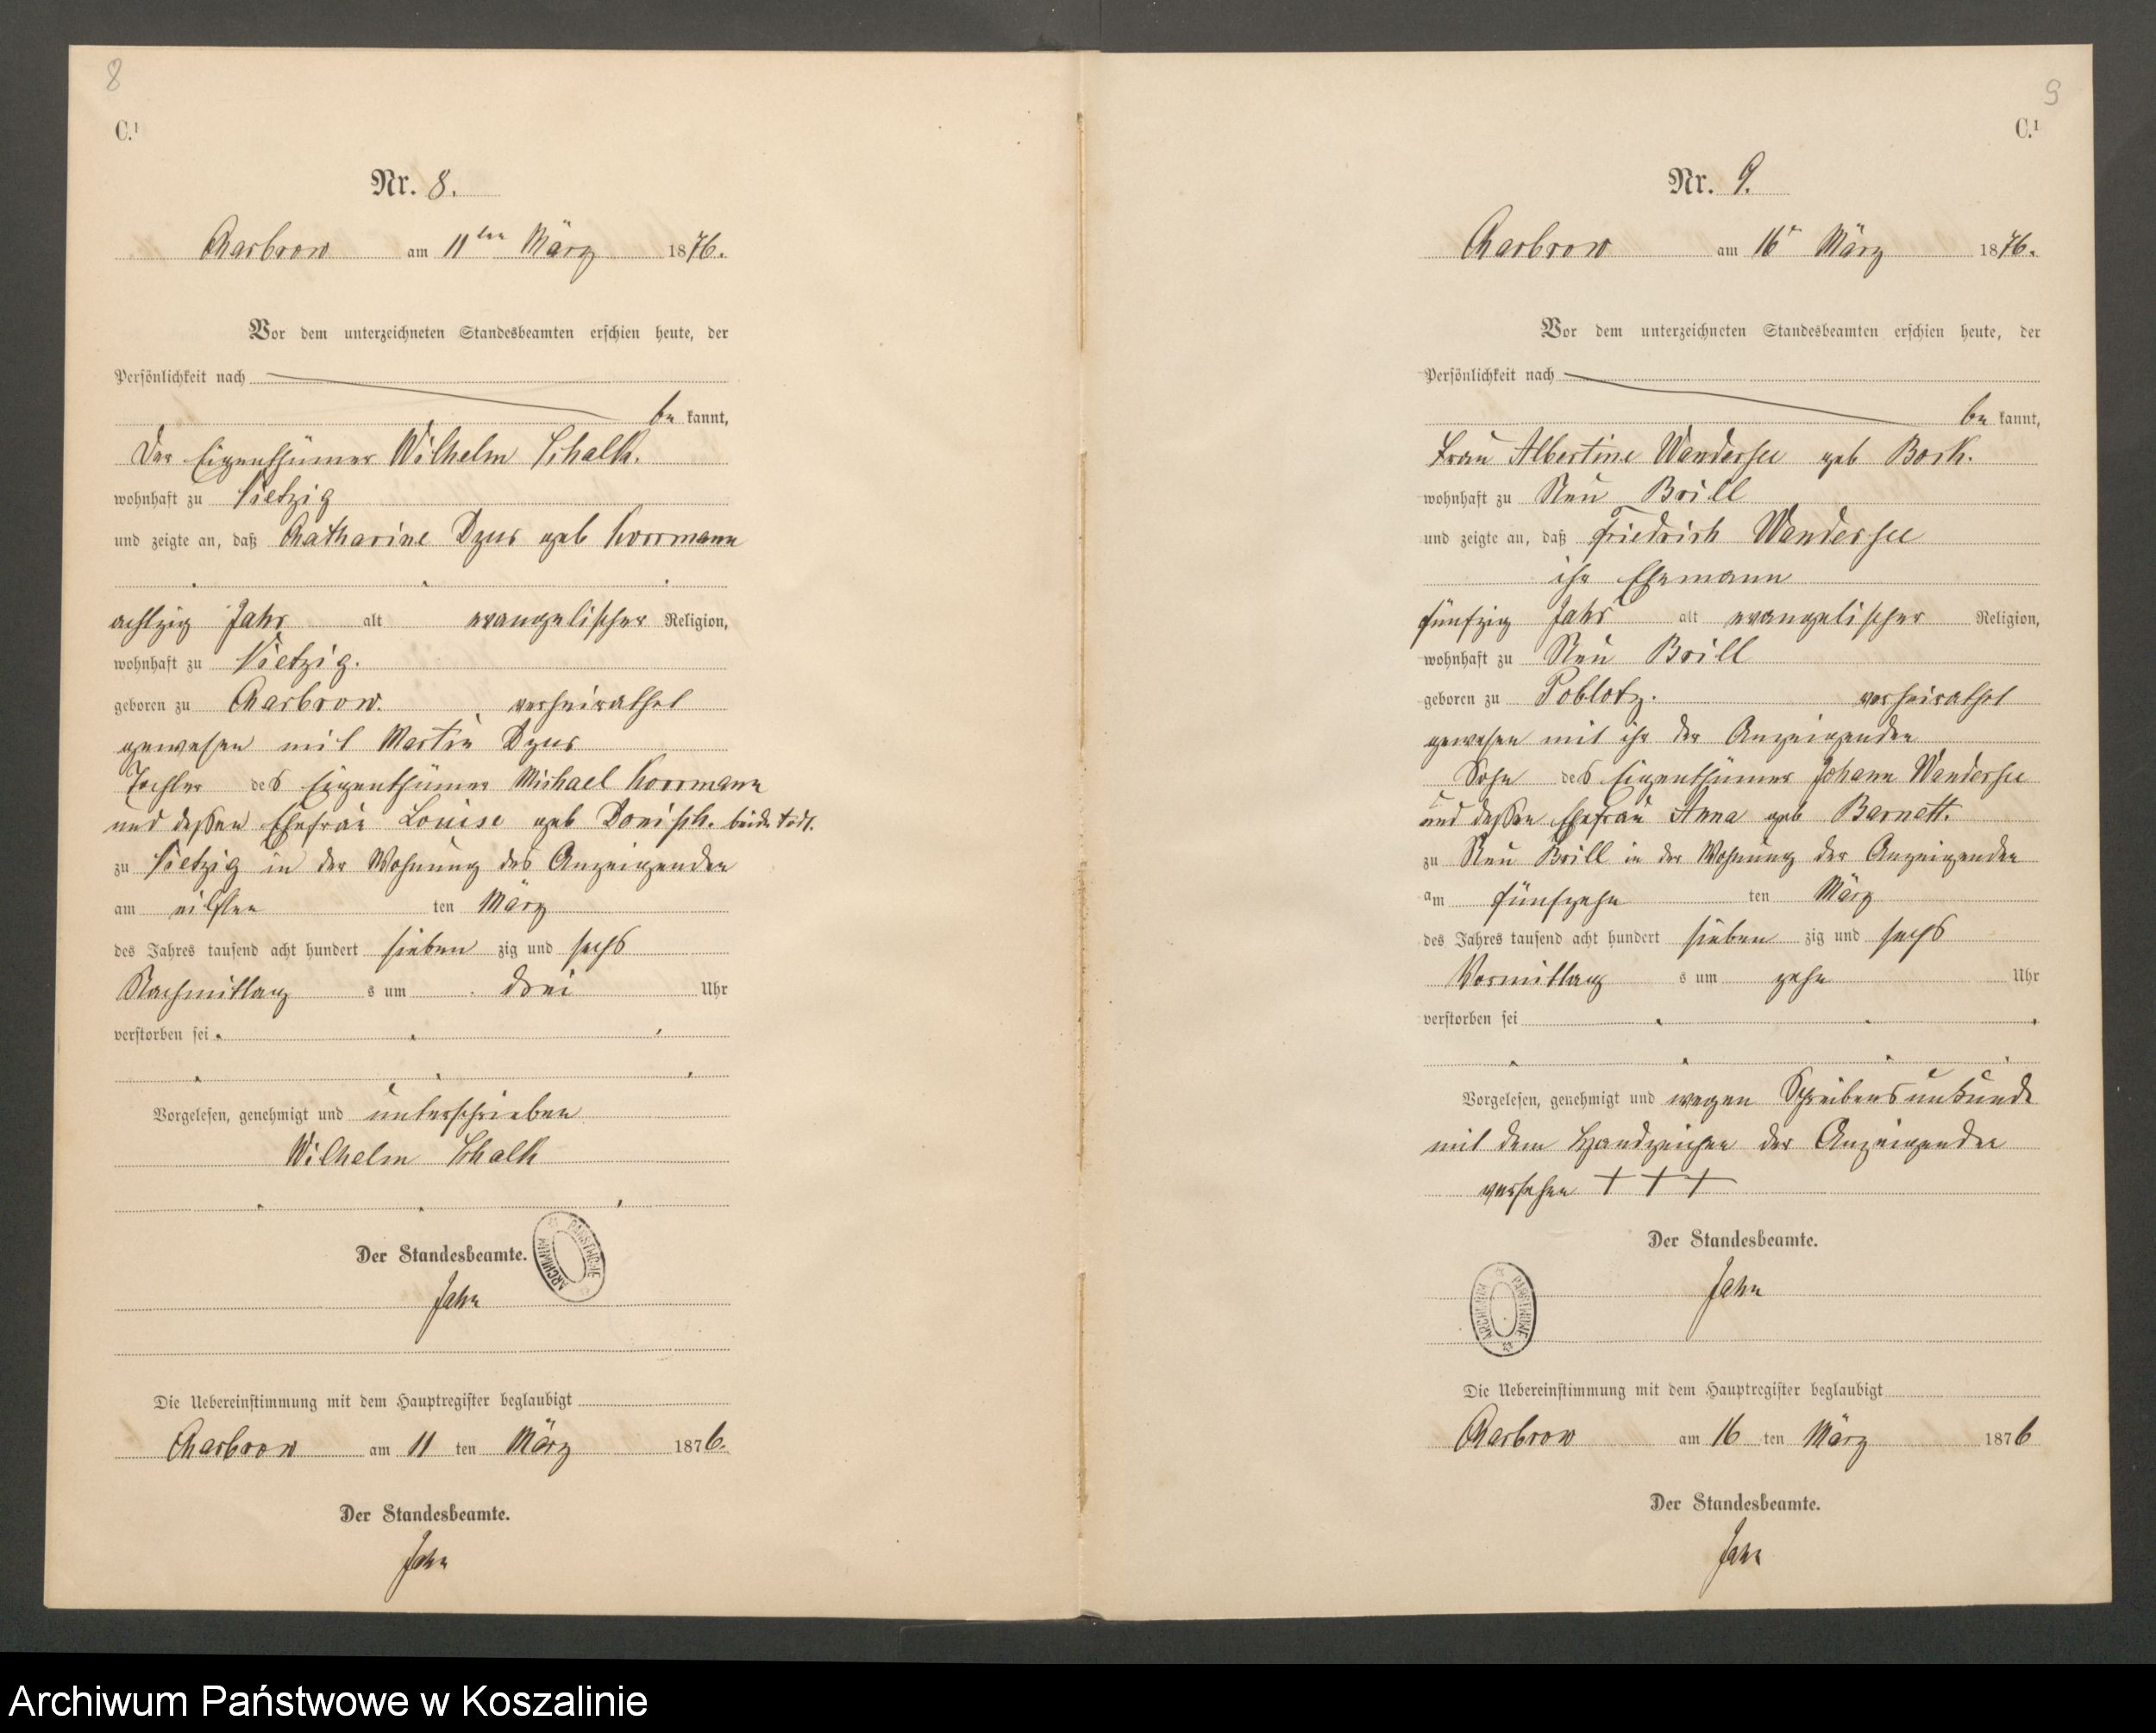 8
C.¹
Nr. 8.
Charbrow am 11ten März 1876.
Vor dem unterzeichneten Standesbeamten erschien heute, der
Persönlichkeit nach
be kannt,
Der Eigenthümer Wilhelm Schalk.
wohnhaft zu Vietzig
und zeigte an, daß Catharine Dzus geb Korrmann
achtzig Jahr alt evangelischer Religion,
wohnhaft zu Vietzig.
geboren zu Charbrow. verheirathet
gewesen mit Martin Dzus
Tochter des Eigenthümer Michael Korrmann
und deßen Ehefrau Louise geb Donisch. beide todt.
zu Vietzig in der Wohnung des Anzeigenden
am eilften ten März
des Jahres tausend acht hundert sieben zig und sechs
Nachmittag s um drei Uhr
verstorben sei
Vorgelesen, genehmigt und unterschrieben
Wilhelm Schalk
Der Standesbeamte.
ARCHIWUM PAŃSTWOWE
Jahn
Die Uebereinstimmung mit dem Hauptregister beglaubigt
Charbrow am 11 ten März 1876.
Der Standesbeamte.
Jahn
9
C.¹
Nr. 9.
Charbrow am 16t März 1876.
Vor dem unterzeichneten Standesbeamten erschien heute, der
Persönlichkeit nach
be kannt,
Frau Albertine Wandersee geb Bork.
wohnhaft zu Neu Brill
und zeigte an, daß Friedrich Wandersee
ihr Ehemann
fünfzig Jahr alt evangelischer Religion,
wohnhaft zu Neu Brill
geboren zu Poblotz. verheirathet
gewesen mit ihr der Anzeigenden
Sohn des Eigenthümer Johann Wandersee
und deßen Ehefrau Anna geb Barnett.
zu Neu Brill in der Wohnung der Anzeigenden
am fünfzehn ten März
des Jahres tausend acht hundert sieben zig und sechs
Vormittag s um zehn Uhr
verstorben sei
Vorgelesen, genehmigt und wegen Schreibensunkunde
mit dem Handzeichen der Anzeigenden
versehen + + +
Der Standesbeamte.
Jahn
ARCHIWUM PAŃSTWOWE
Die Uebereinstimmung mit dem Hauptregister beglaubigt
Charbrow am 16 ten März 1876
Der Standesbeamte.
Jahn
Archiwum Państwowe w Koszalinie